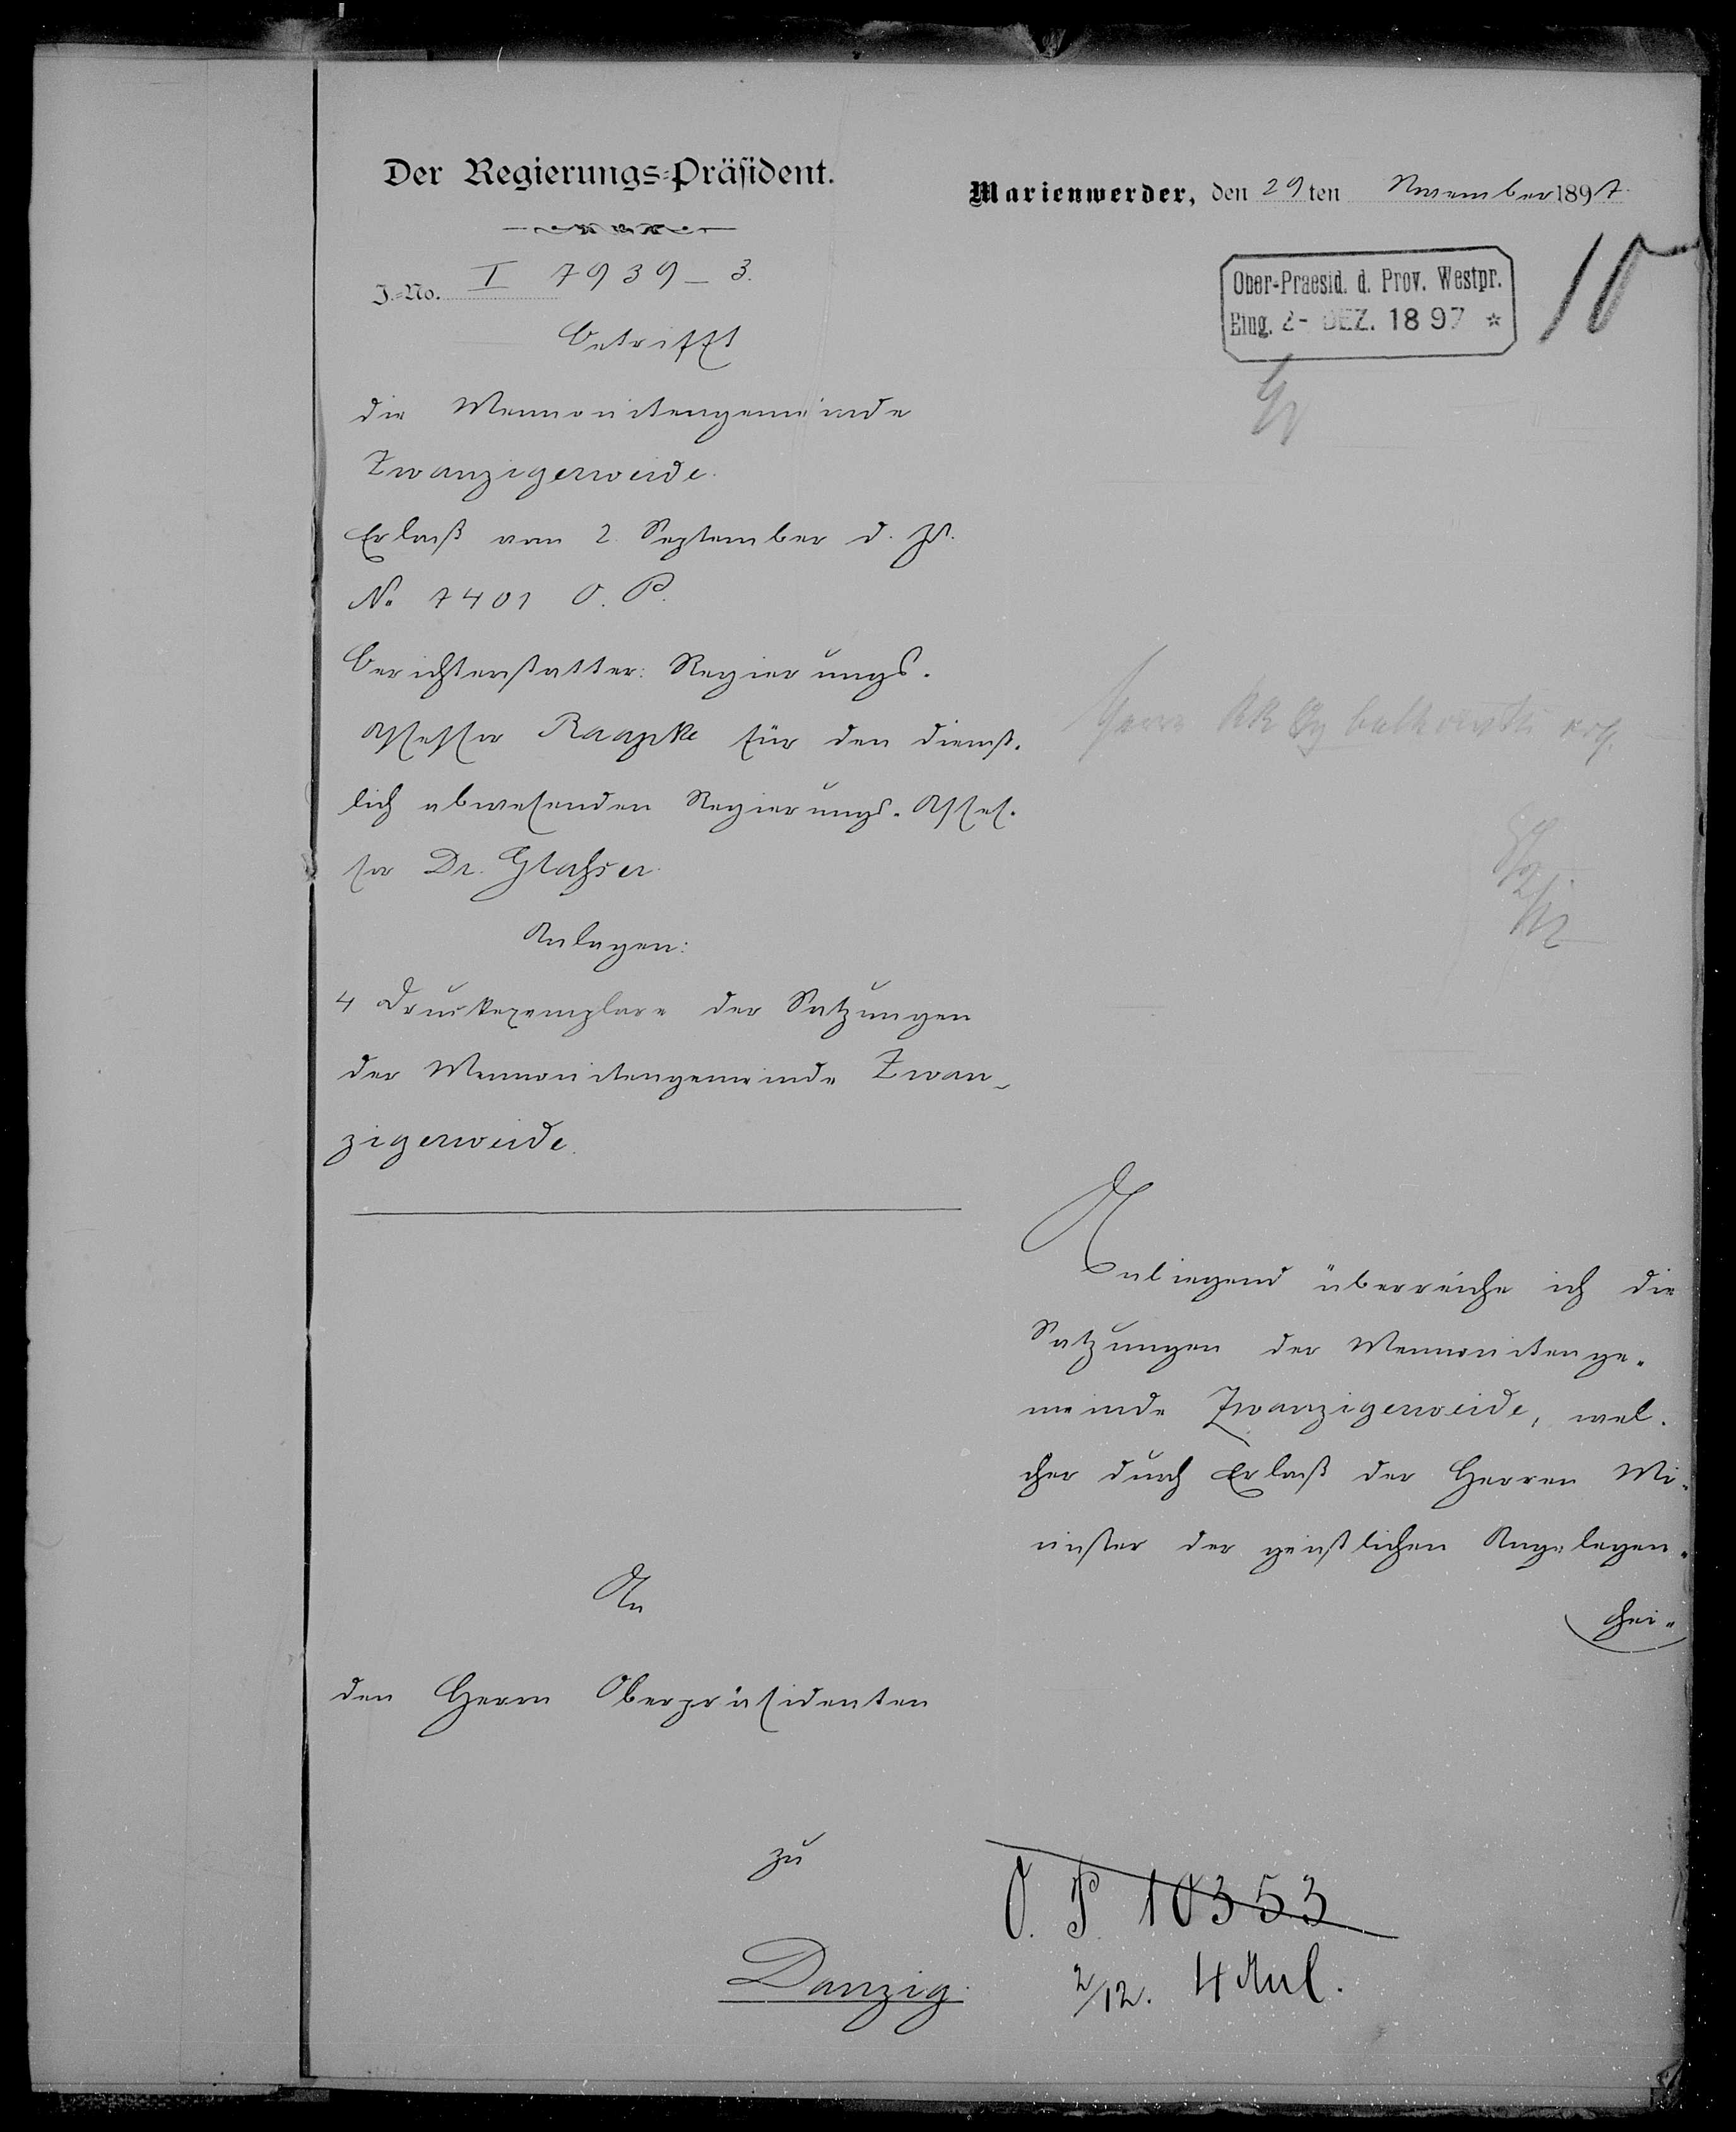 Der Regierungs-Präsident.
Marienwerder, den 29ten November 1897.
J.-No. I 7939-3.
Ober-Praesid. d. Prov. Westpr.
Eing. 2- DEZ. 1897 *
10
Betrifft
die Mennonitengemeinde
Zwanzigerweide.
Erlaß vom 2. September d. Js.
No 7401 O. P.
Berichterstatter: Regierungs-
Assessor Raapke für den dienst-
lich abwesenden Regierungs-Asses-
sor Dr. Glasser.
Anlagen:
4 Druckexemplare der Satzungen
der Mennonitengemeinde Zwan-
zigerweide.
Anliegend überreiche ich die
Satzungen der Mennonitenge-
meinde Zwanzigerweide, wel-
cher durch Erlaß der Herren Mi-
nister der geistlichen Angelegen-
hei-
An
den Herrn Oberpräsidenten
zu
Danzig.
O. P. 10353
2/12. 4 Anl.